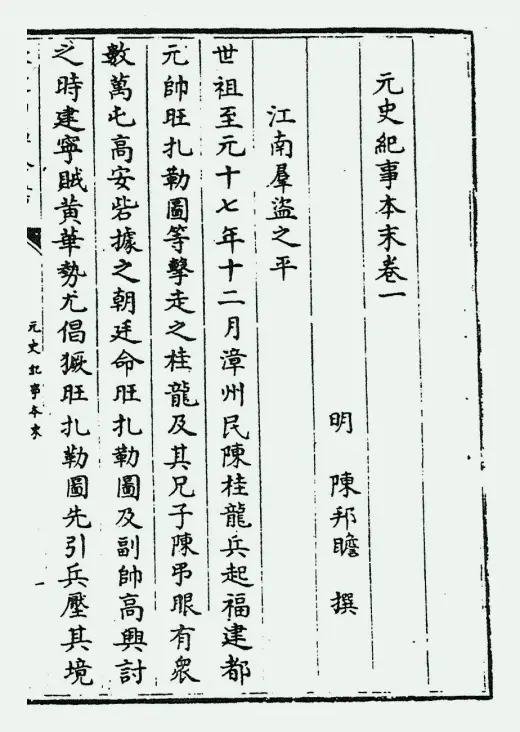 元史紀事本末卷一
明 陳邦瞻 撰
江南羣盜之平
世祖至元十七年十二月漳州民陳桂龍兵起福建都
元帥旺扎勒圖等擊走之桂龍及其兄子陳弔眼有衆
數萬屯高安砦據之朝廷命旺扎勒圖及副帥高興討
之時建寧賊黃華勢尤倡獗旺扎勒圖先引兵壓其境
元史紀事本末
一